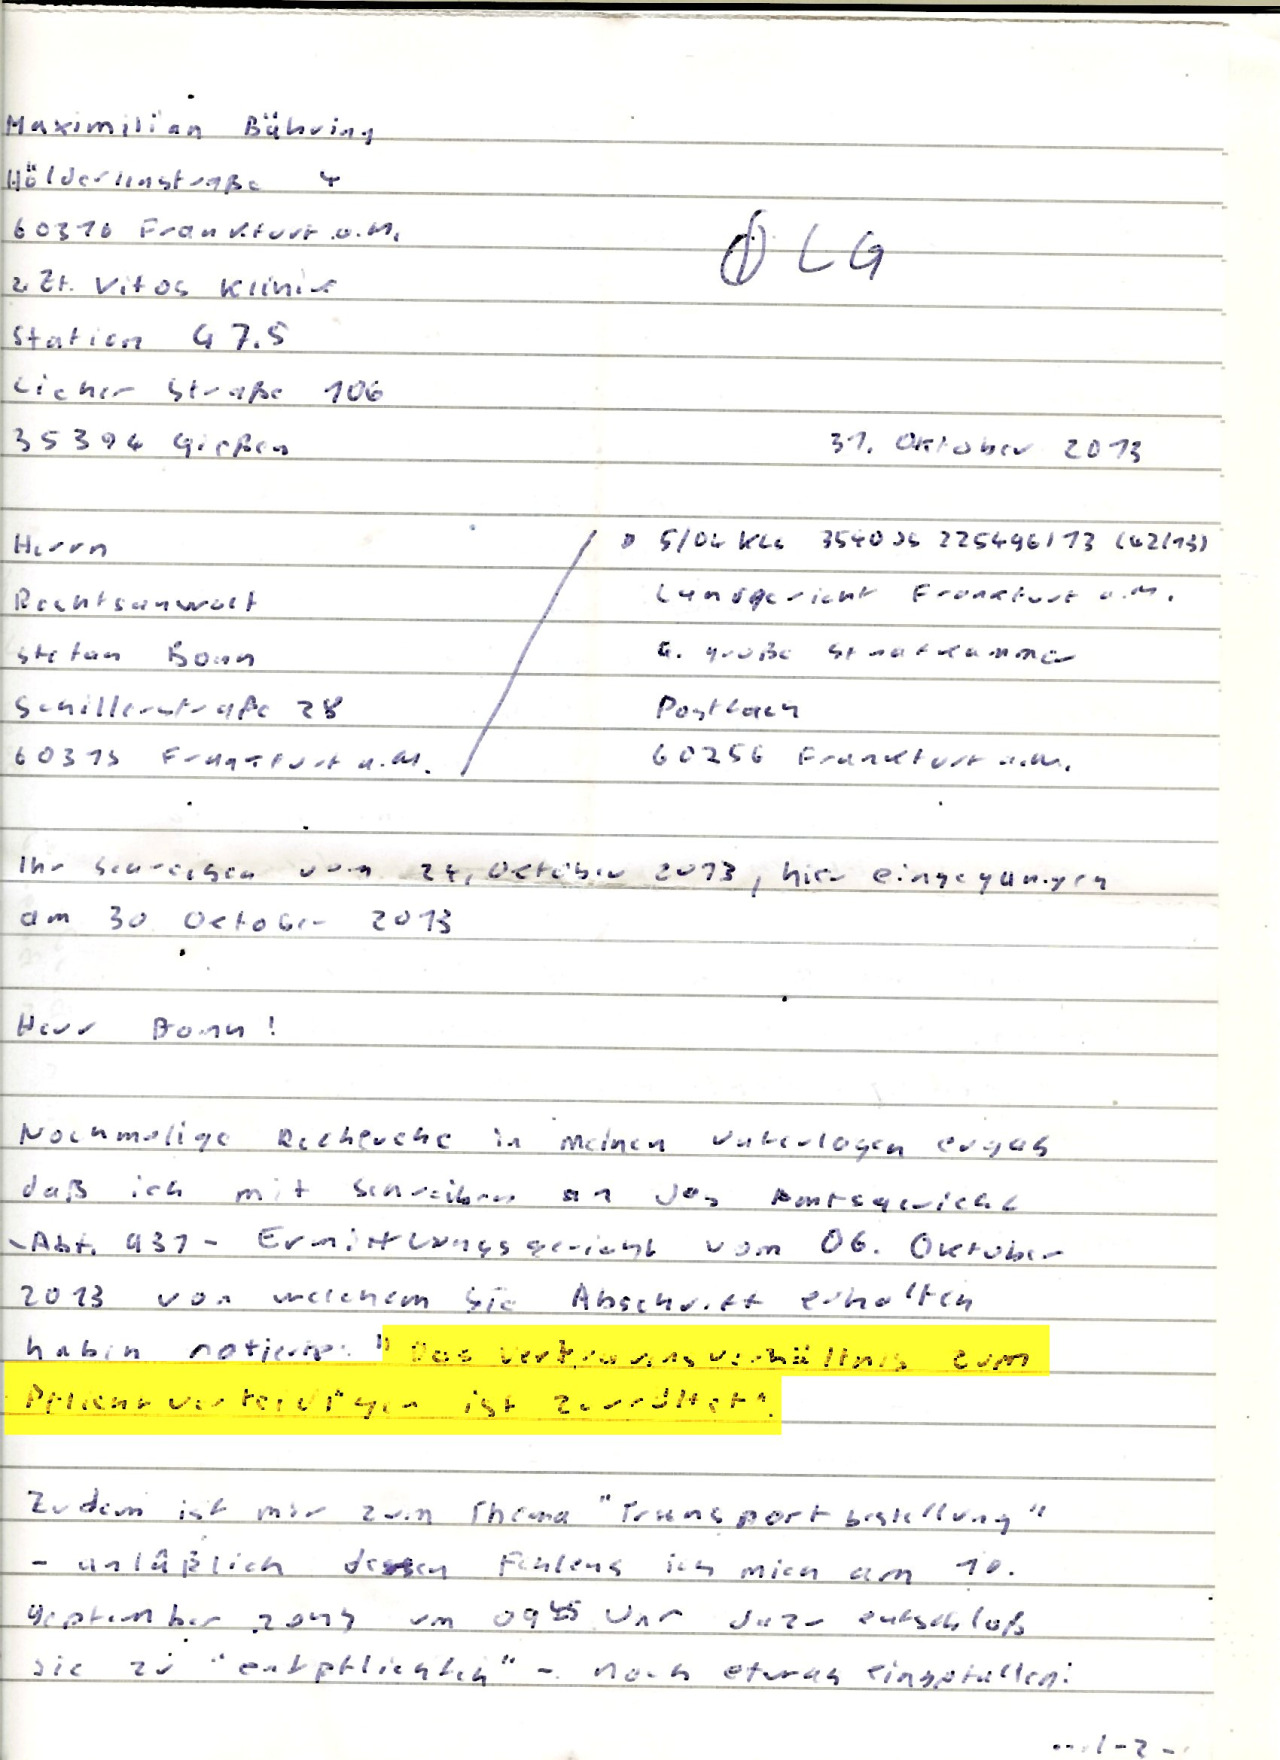 Maximilian Bähring
Hölderlinstraße 4
60316 Frankfurt a.M.
z.Zt. Vitos Klinik
Station G 7.5
Licher Straße 106
35394 Gießen
LG
31. Oktober 2013
Herrn
Rechtsanwalt
Stefan Bonn
Schillerstraße 28
60313 Frankfurt a.M.
5/04 KLs 3540 Js 225496/13 (42/13)
Landgericht Frankfurt a.M.
4. große Strafkammer
Postfach
60256 Frankfurt a.M.
Ihr Schreiben vom 24. Oktober 2013, hier eingegangen
am 30 Oktober 2013
Herr Bonn!
Nochmalige Recherche in meinen Unterlagen ergab
daß ich mit Schreiben an das Amtsgericht
- Abt. 931 - Ermittlungsgericht vom 06. Oktober
2013 von welchem Sie Abschrift erhalten
haben notierte: "Das Vertrauensverhältnis zum
Pflichtverteidigen ist zerrüttet".
Zudem ist mir zum Thema "Transportbestellung"
- anläßlich dessen Fehlens ich mich am 10.
September 2013 um 09 45 Uhr dazu entschloß
sie zu "entpflichten" - noch etwas eingefallen:
.../-2-